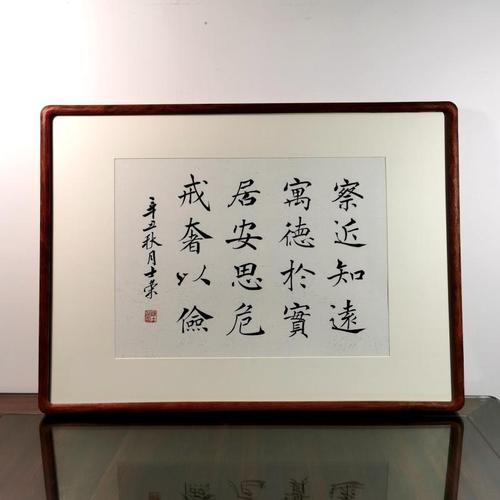 察近知遠
寓德於實
居安思危
戒奢以儉
辛丑秋月士荣